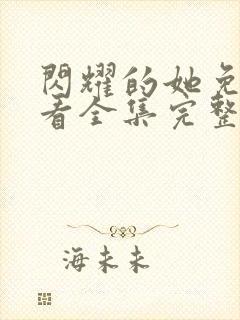 閃耀的她免
看全集完整
海未未